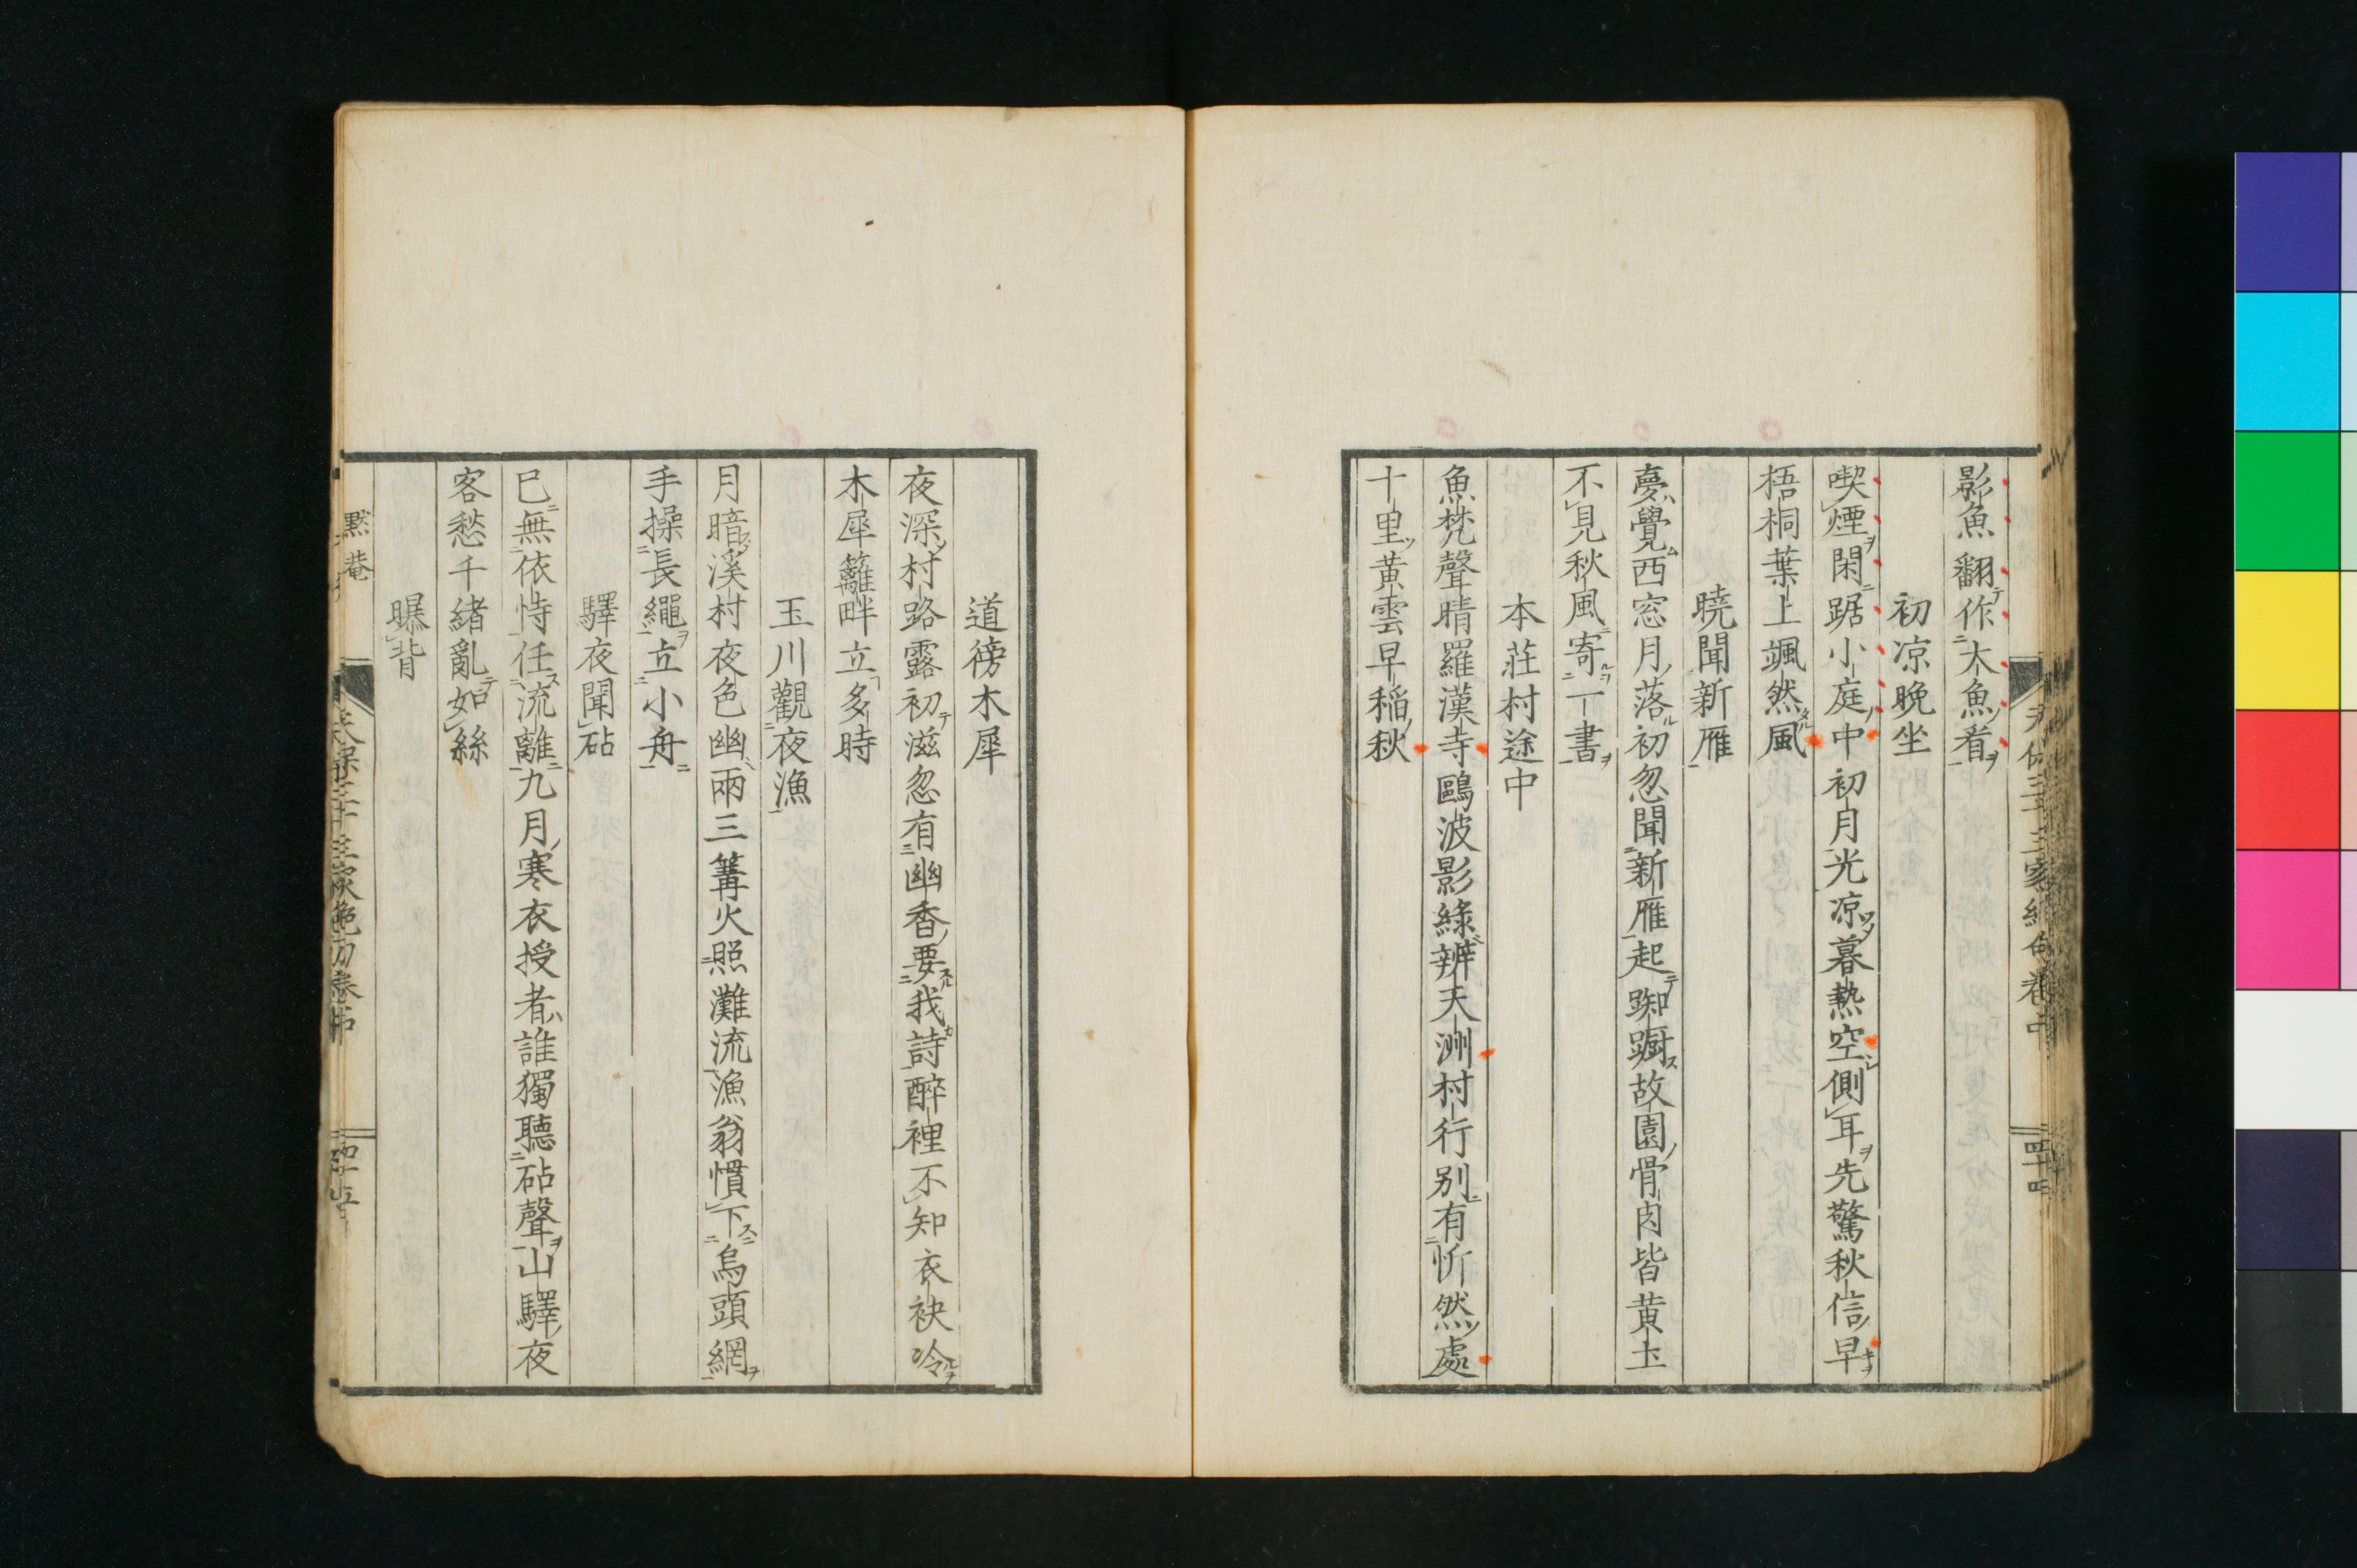 影魚翻作大魚看
初凉晚坐
喫煙閑踞小庭中初月光凉暮熱空側耳先驚秋信早
梧桐葉上颯然風
曉聞新雁
夢覺西窓月落初忽聞新雁起踟蹰故園骨肉皆黄土
不見秋風寄一書
本莊村途中
魚梵聲晴羅漢寺鷗波影綠辨天洲村行别有忻然處
十里黄雲早稲秋
道傍木犀
夜深村路露初滋忽有幽香要我詩醉裡不知衣袂冷
木犀籬畔立多時
玉川觀夜漁
月暗溪村夜色幽兩三篝火照灘流漁翁慣下烏頭網
手操長繩立小舟
驛夜聞砧
已無依恃任流離九月寒衣授者誰獨聽砧聲山驛夜
客愁千緒亂如絲
曝背
默菴